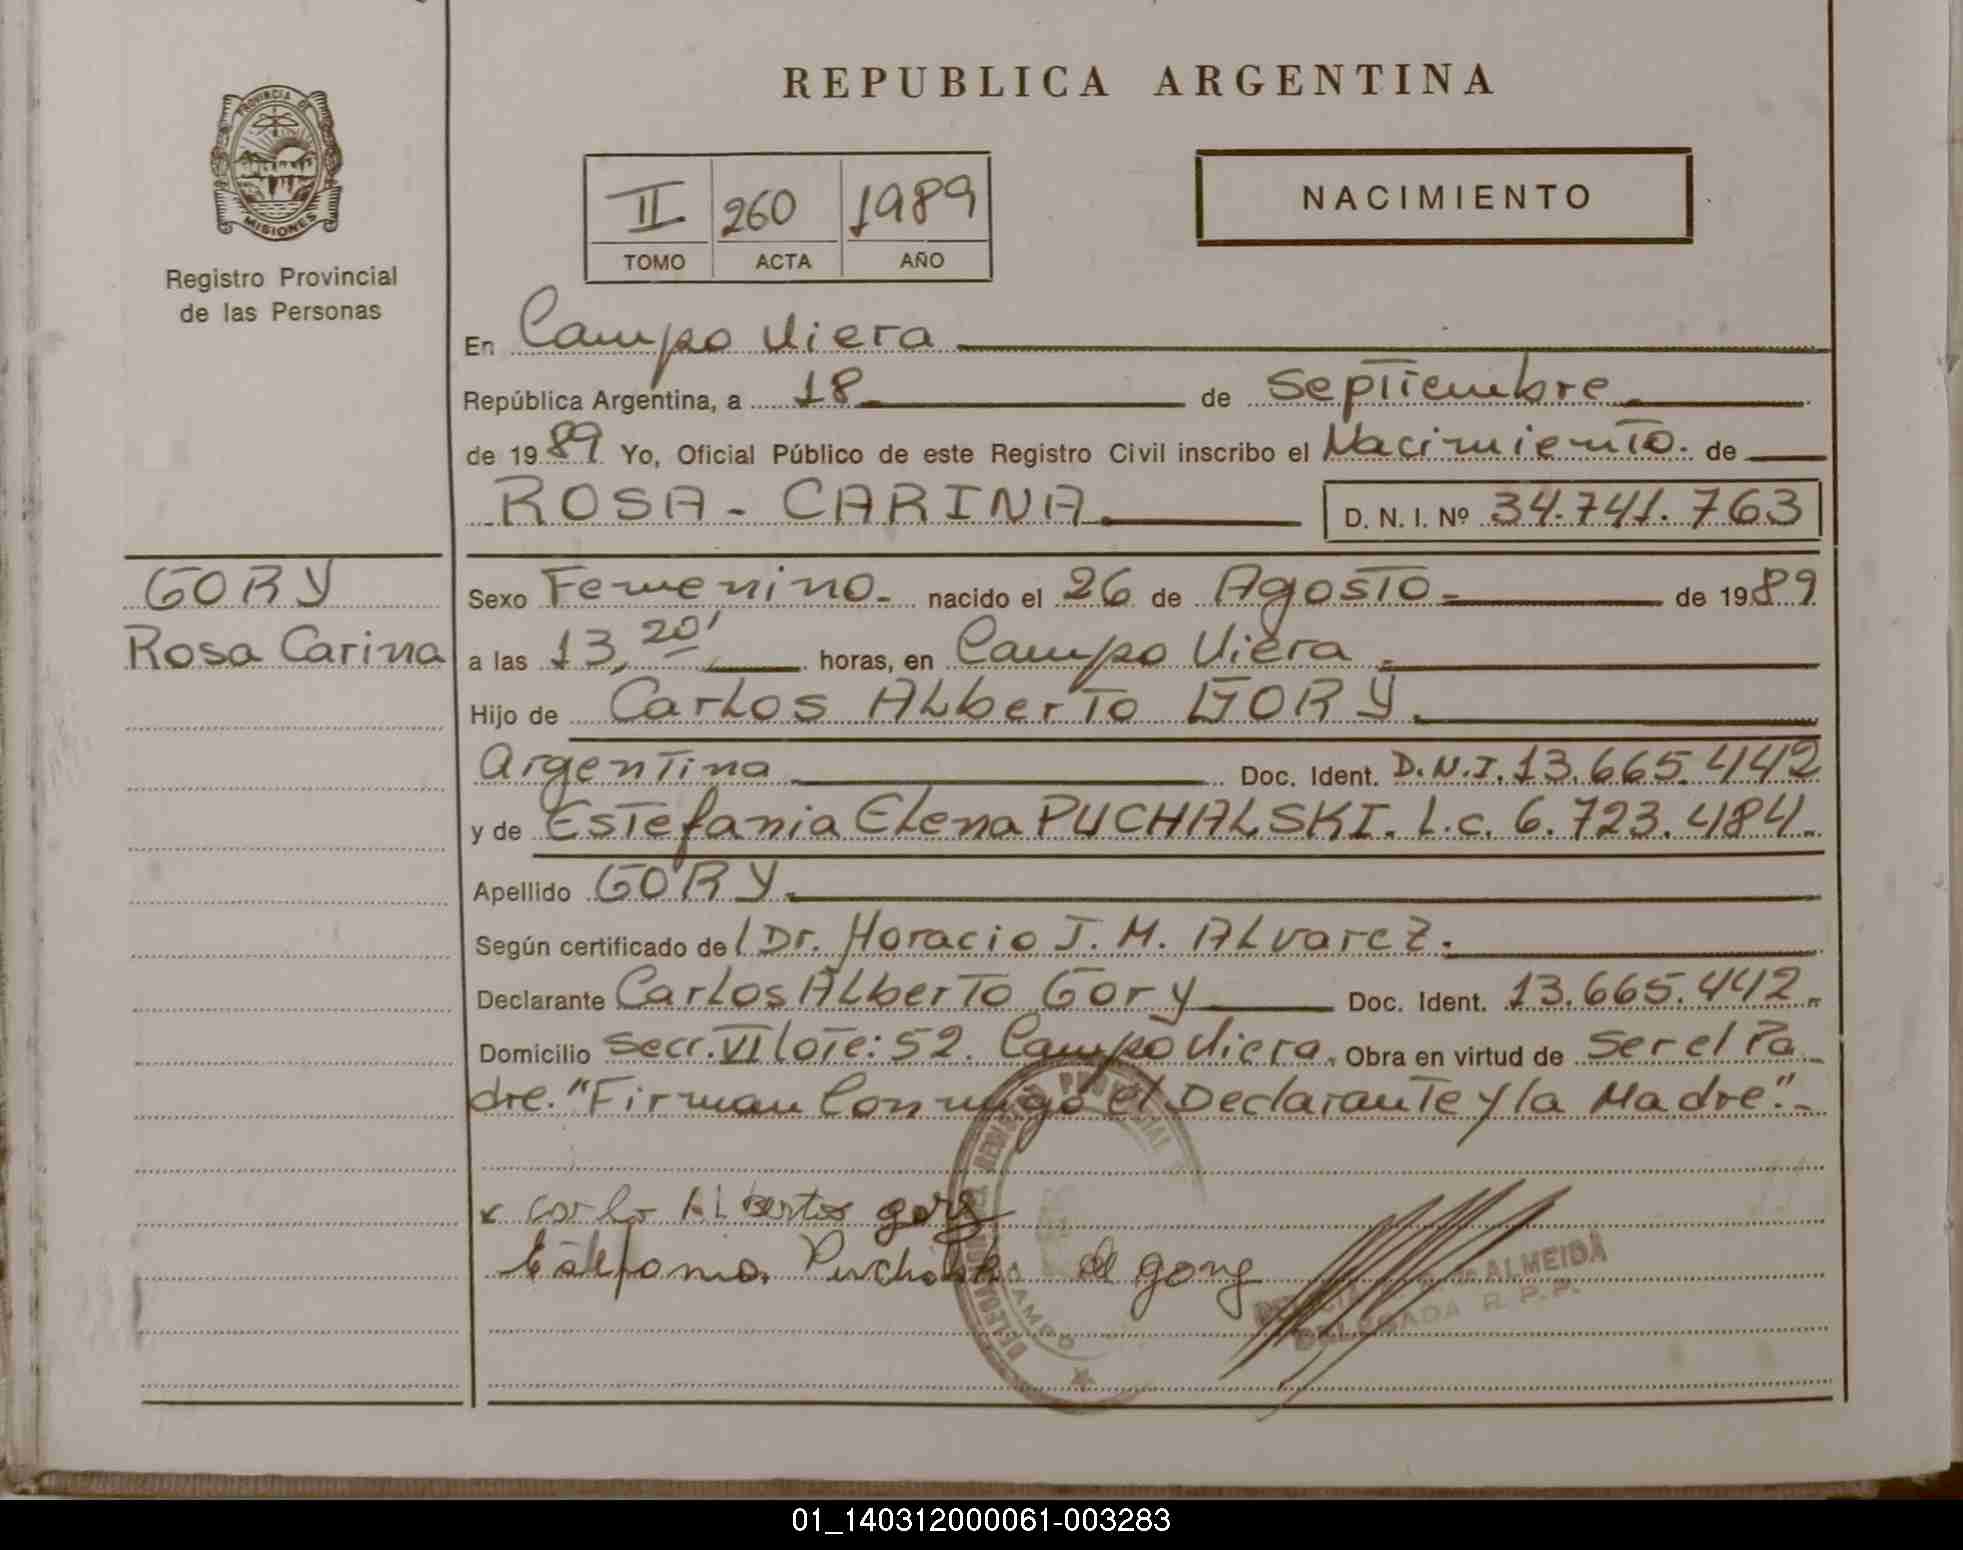 PROVINCIA DE
MISIONES
Registro Provincial
de las Personas
REPUBLICA ARGENTINA
II 260 1989
TOMO ACTA AÑO
NACIMIENTO
En Campo Viera
República Argentina, a 18 de Septiembre
de 1989 Yo, Oficial Público de este Registro Civil inscribo el Nacimiento. de
ROSA - CARINA D. N. I. Nº 34.741.763
GORY
Rosa Carina
Sexo Femenino - nacido el 26 de Agosto - de 1989
a las 13,20' horas, en Campo Viera
Hijo de Carlos Alberto GORY
Argentina Doc. Ident. D.N.I. 13.665.442
y de Estefania Elena PUCHALSKI. L.c. 6.723.484
Apellido GORY
Según certificado de l Dr. Horacio J. M. Alvarez.
Declarante Carlos Alberto Gory Doc. Ident. 13.665.442
Domicilio Secc. VI lote: 52. Campo Viera. Obra en virtud de ser el Pa
dre. "Firman Conmigo el Declarante y la Madre".-
Carlo Alberto gory
Estefania Puchalski de gory
ALMEIDA
DELEGADA R. P. P.
01_140312000061-003283